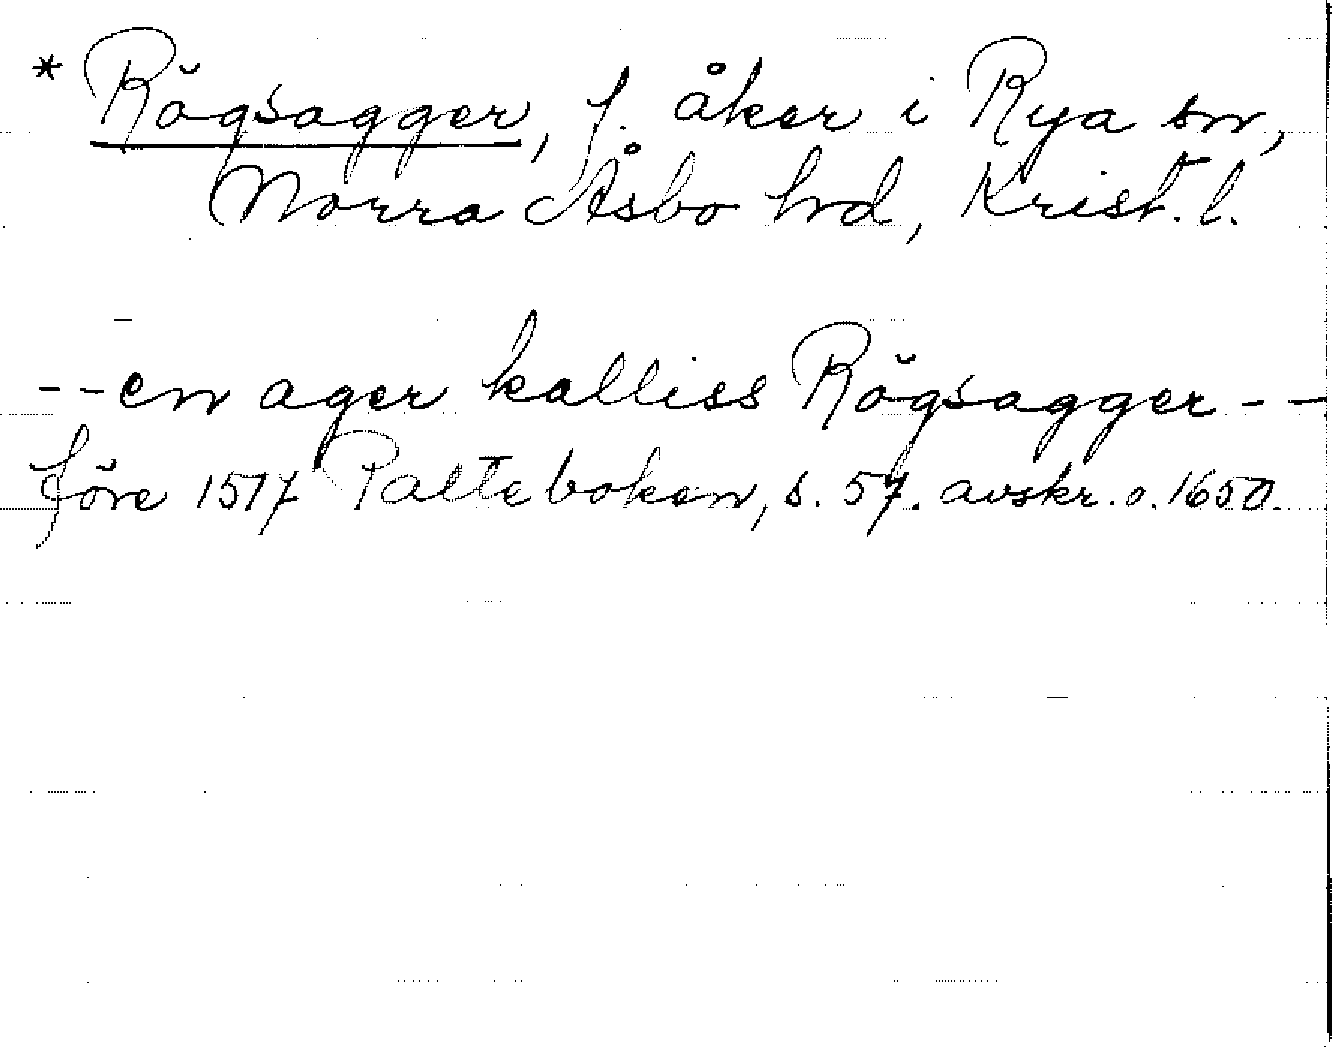 * Rŏgsagger, f. åker i Rya sn,
Norra Åsbo hd, Krist. l.
--en ager kalliss Rŏgsagger--
före 1517 Palteboken, s. 57. avskr. o. 1650.